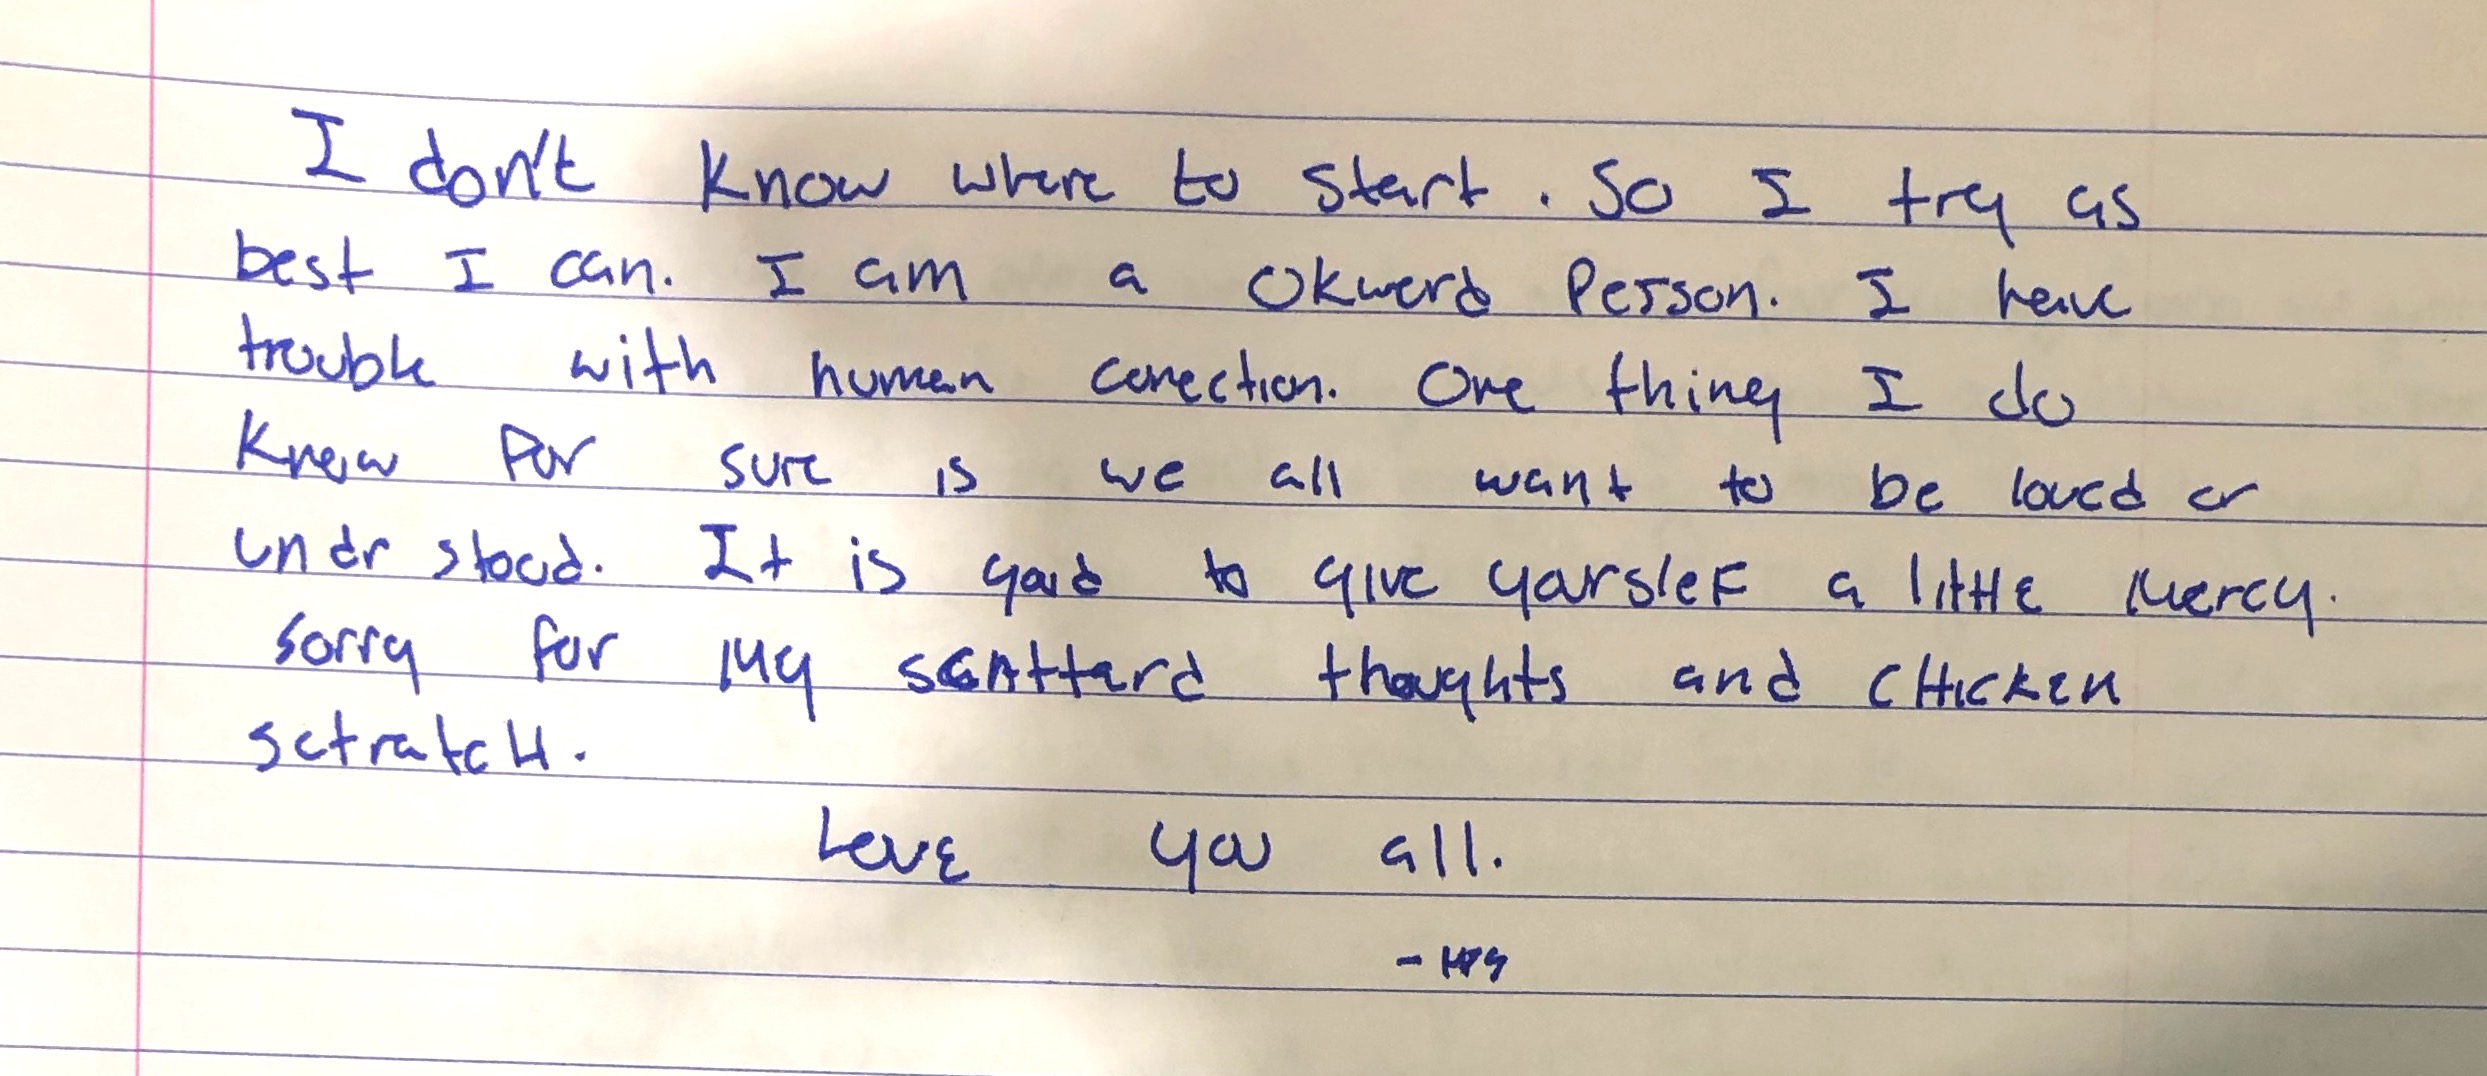 I don't know where to start. So I try as
best I can. I am a Okword Person. I have
trouble with human conection. One thing I do
Know for sure is we all want to be loved or
undr stood. It is good to give yourslef a little Mercy.
Sorry for My scattard thoughts and CHICKEN
sctratcH.
Love you all.